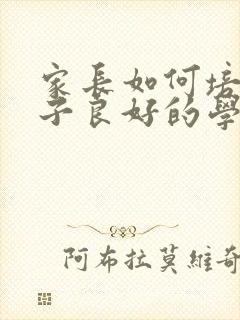 家長如何培
子良好的學
阿布拉莫維奇